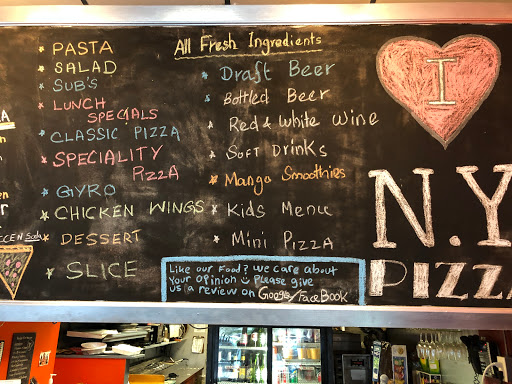 PASTA
SALAD
SUB'S
LUNCH
SPECIALS
CLASSIC PIZZA
SPECIALITY
PIZZA
GYRO
CHICKEN WINGS
DESSERT
SLICE
All Fresh Ingredients
Draft Beer
Bottled Beer
Red & White Wine
Soft Drinks
Mango Smoothies
Kids Menu
Mini Pizza
Like our Food? we care about
Your opinion Please give
us a review on Google/FaceBook
I
N.Y
PIZZA